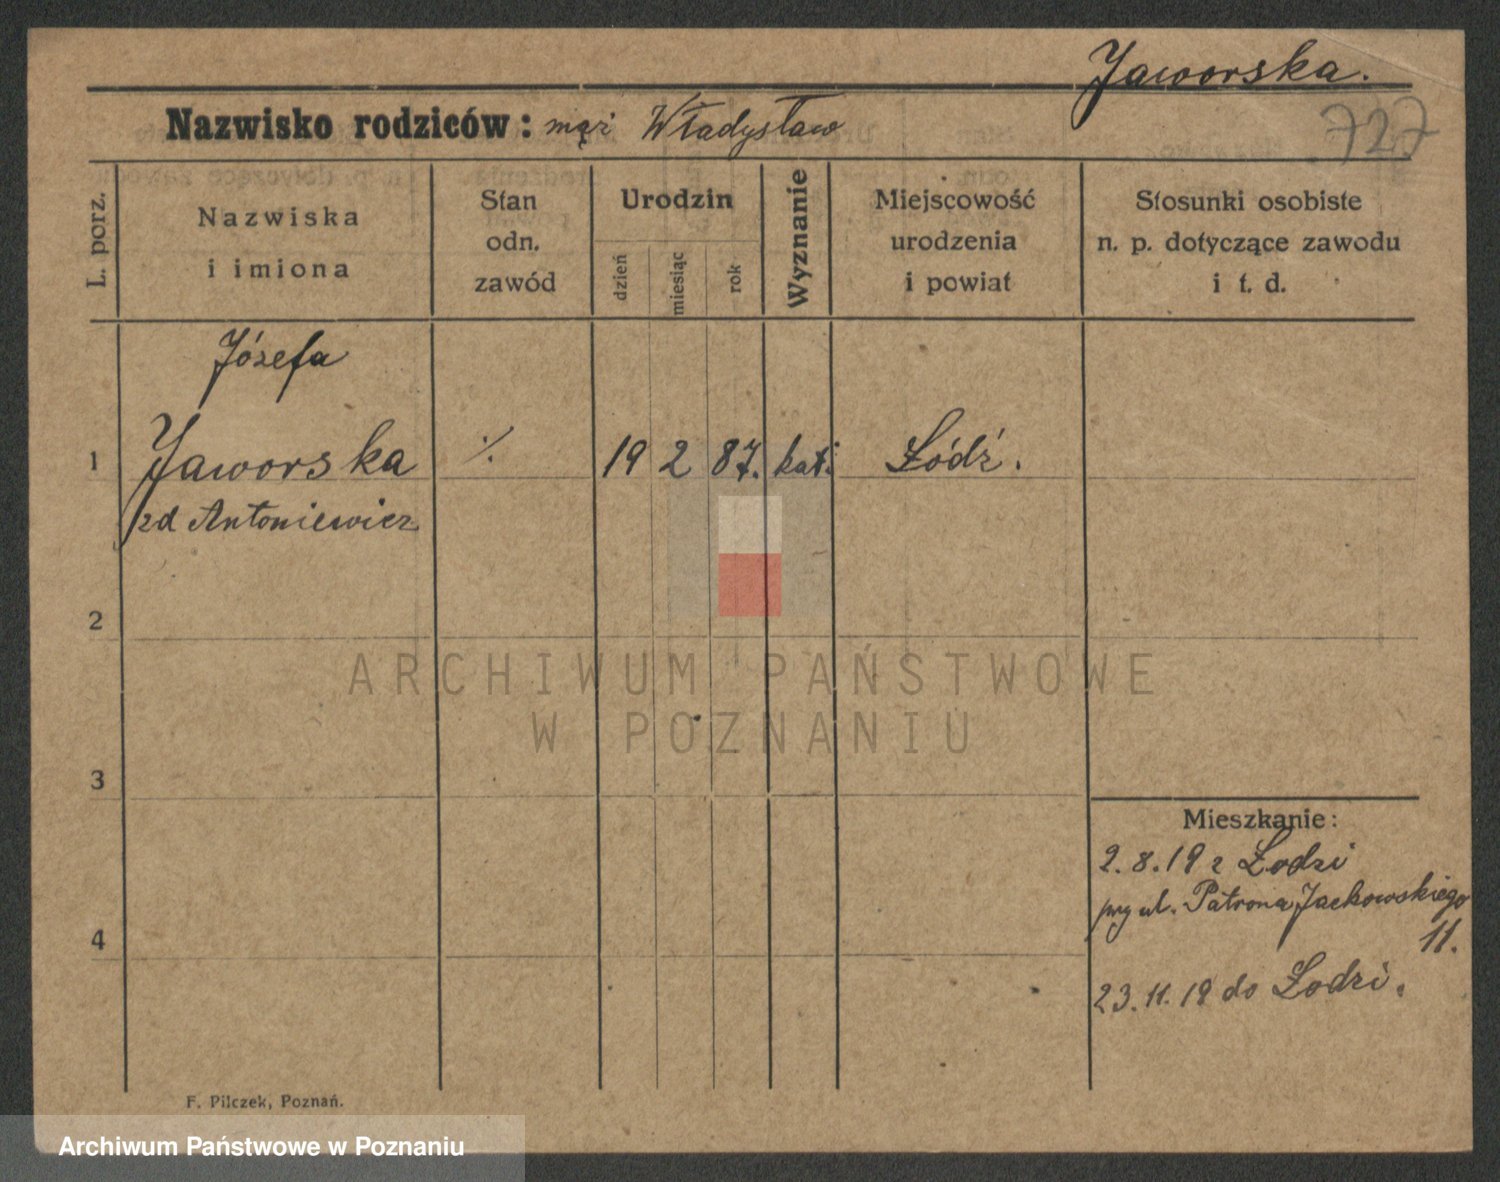 Jaworska.
727
Nazwisko rodziców: mąż Władysław
L. porz.
Nazwiska
i imiona
Stan
odn.
zawód
Urodzin
dzień
miesiąc
rok
Wyznanie
Miejscowość
urodzenia
i powiat
Stosunki osobiste
n. p. dotyczące zawodu
i t. d.
Józefa
1 Jaworska ·/. 19 2 87. kat: Łódź.
zd Antoniewicz
2
ARCHIWUM PAŃSTWOWE
W POZNANIU
3
Mieszkanie:
2.8.19 z Łodzi
przy ul. Patrona Jackowskiego
11.
4
23.11.19 do Łodzi.
F. Pilczek, Poznań.
Archiwum Państwowe w Poznaniu